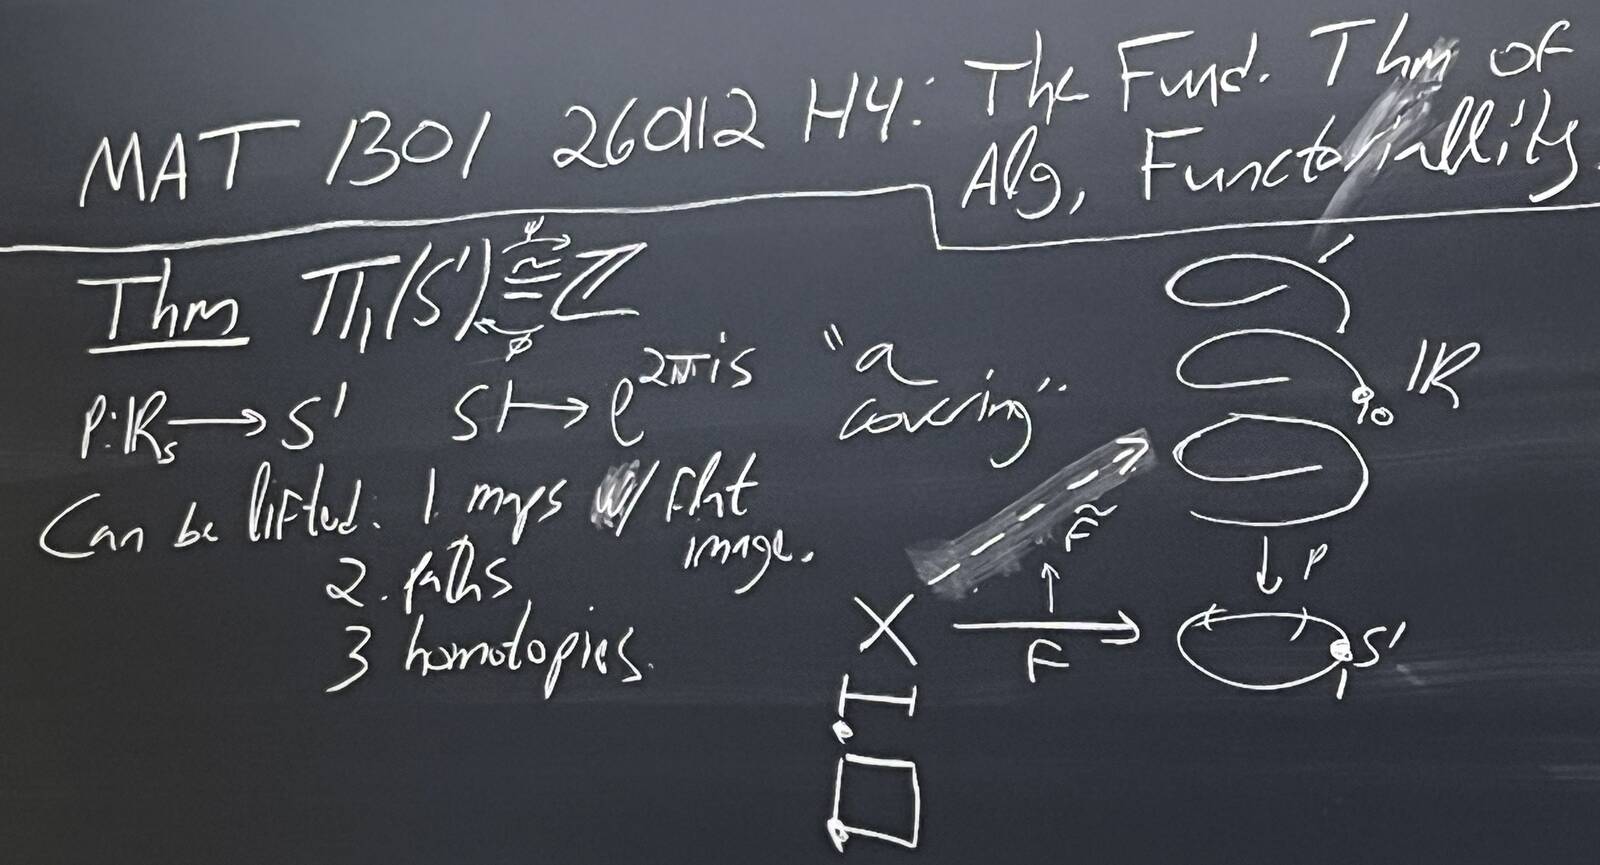 MAT 1301 260112 H4: The Fund. Thm of
Alg, Functoriallity.
Thm π₁(S¹) ≅ ℤ
ψ
φ
p: ℝₛ → S¹ s ↦ e^{2πis} "a
covering"
Can be lifted: 1. maps w/ flat
image.
2. paths
3 homotopies.
ℝ
p
X
F
F̃
S¹
1
I